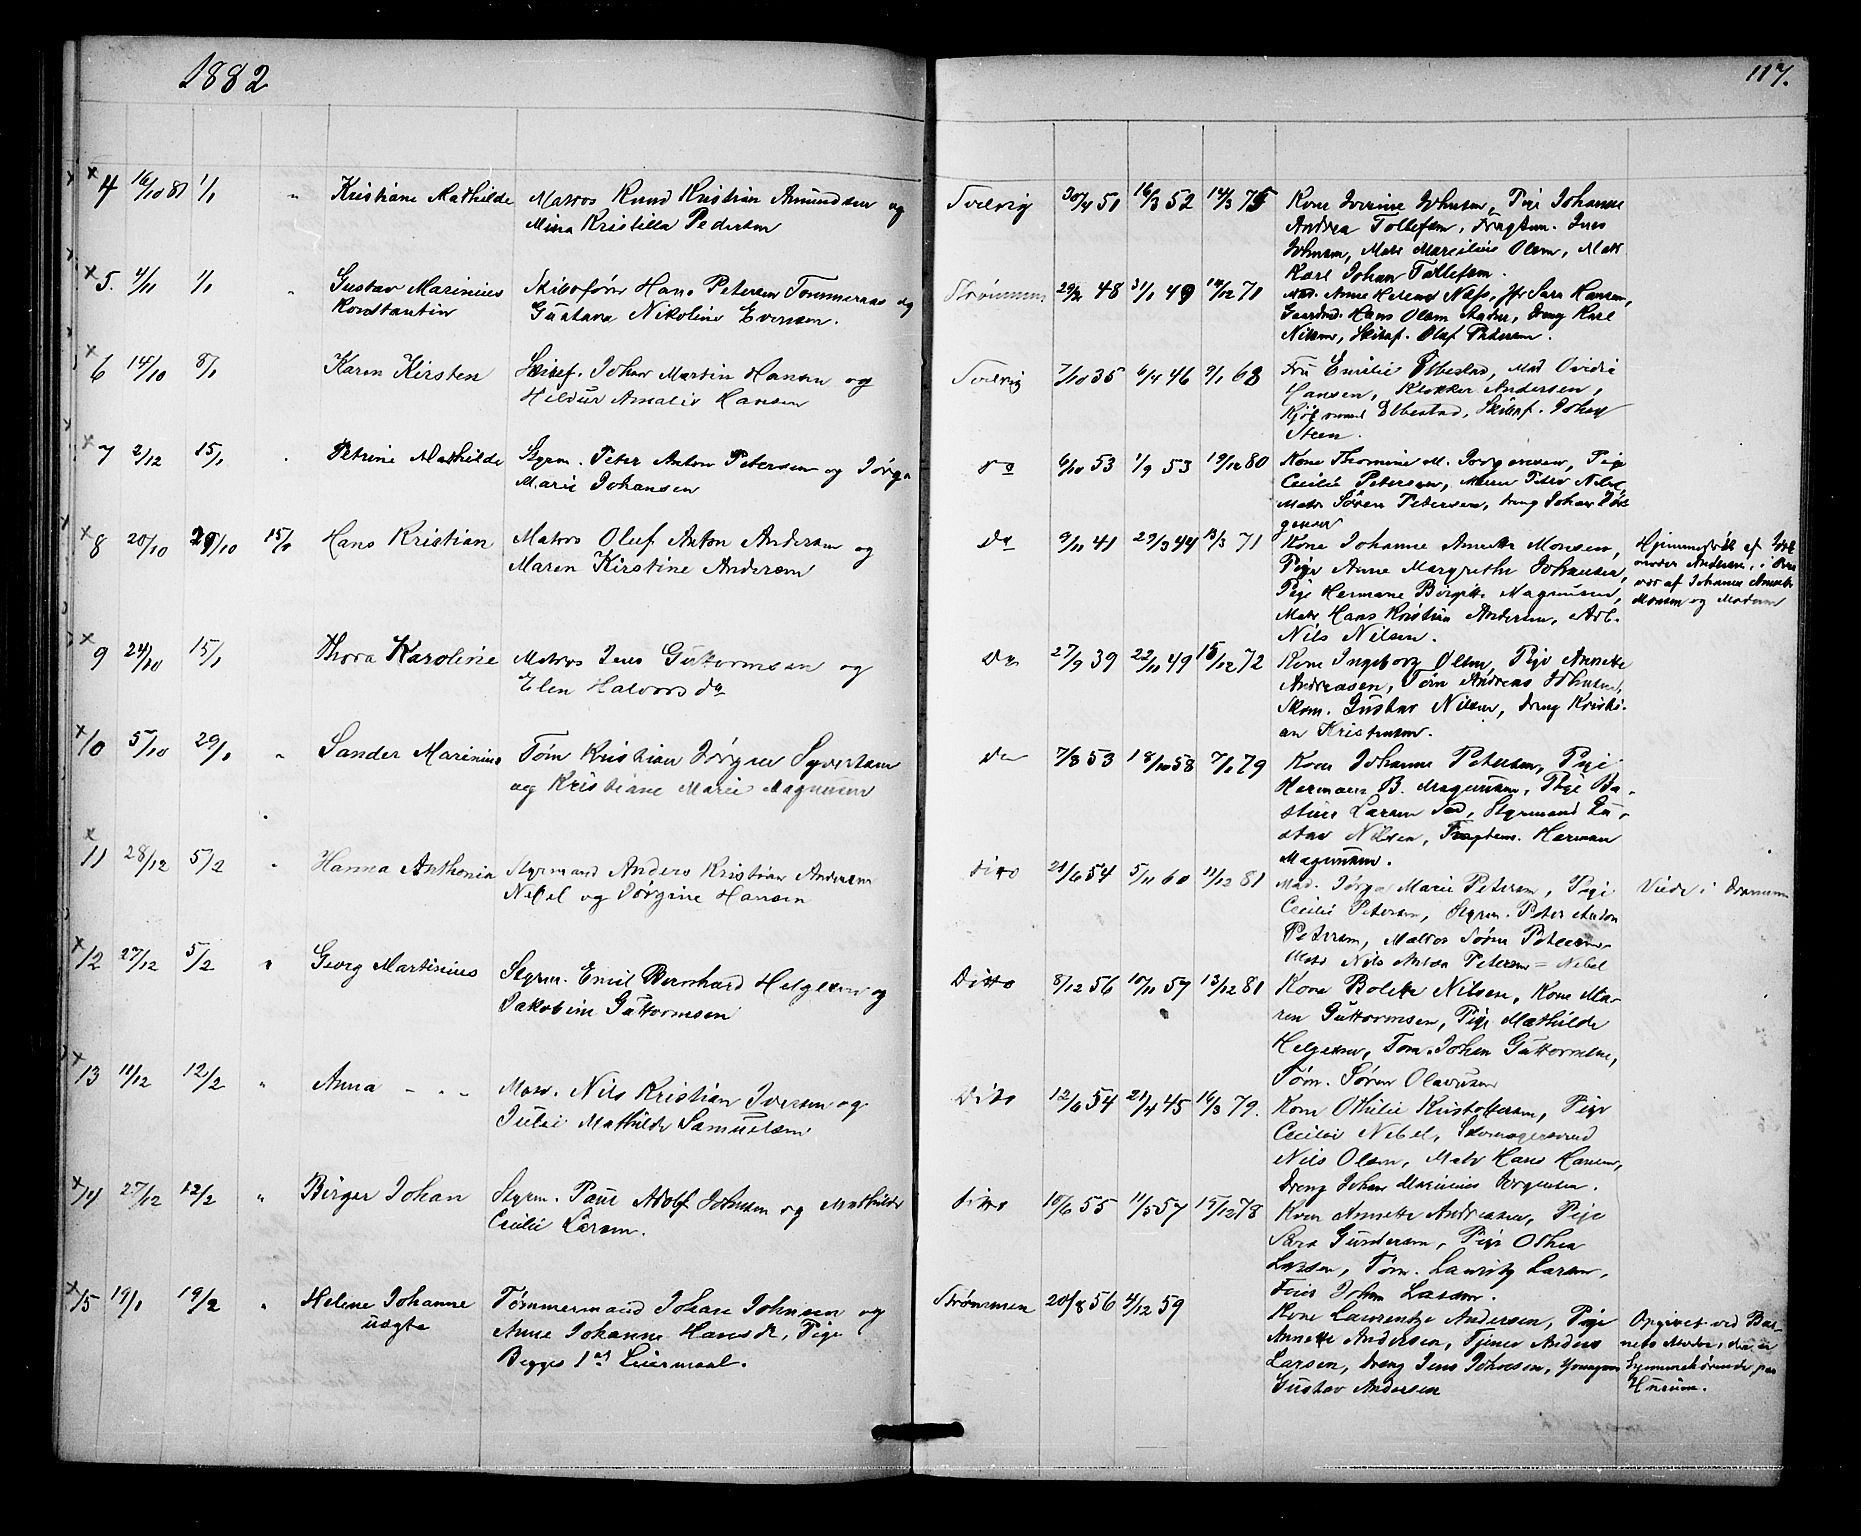 1882
117.
4 16/10 81 1/1 " Kristiane Mathilde Matros Knud Kristian Amundsen og
Mina Kristilla Pedersen
Svelvig 30/4 51 16/3 52 14/3 75 Kone Iverine Johnsen, Pige Johanne
Andrea Tollefsen, Fragtem. Jens
Johnsen, Matr Marcilius Olsen, Matr
Karl Johan Tollefsen.
5. 4/11 1/1 " Gustav Marinius Skibsfører Hans Petersen Tømmeraas og
Konstantin Gustava Nikoline Evensen.
Strømmen 29/2 48 31/1 49 10/12 71 Mad. Anne Helene Næss, Jfr Sara Hansen,
Gaardm. Hans Olsen, Dreng Karl
Nilsen, Skibsf. Olaf Petersen.
6 14/10 8/1 Karen Kirsten Skibsf. Johan Martin Hansen og
Hildur Amalie Hansen
Svelvig 7/10 35 6/4 46 9/1 68 Fru Emilie Ellestad, Mad Ovidia
Hansen, Klokker Andersen,
Kjøbmand Ellestad, Skibsf. Johan
Steen.
7 2/12 15/1 Petrine Mathilde Styrm. Peter Anton Petersen og Jørga
Marie Johansen
do 6/10 53 1/9 53 19/12 80 Kone Thomine M. Jørgensen, Pige
Cecilie Petersen, Peter Nebel,
Matr Søren Petersen, Dreng Johan Jør-
gensen
8 20/10 29/10 15/1 Hans Kristian Matros Oluf Anton Andersen og
Maren Kirstine Andersen
Do 9/11 41 29/3 44 13/3 71 Kone Johanne Annette Monsen,
Pige Anne Margrethe Johansen,
Pige Hermane Birgitte Magnusen,
Matr Hans Kristian Andersen, Arb.
Nils Nilsen.
Hjemmedøbt af Jord-
moder Andersen,
af Johanne Annette
Monsen og Moderen
9 24/10 15/1 Thora Karoline Matros Jens Guttormsen og
Elen Halvorsda
Do 27/9 39 22/11 49 15/12 72 Kone Ingeborg Olsen, Pige Annette
Andreasen, Tøm Andreas Johnsen,
Skom. Gustav Nilsen, Dreng Kristi-
an Kristensen.
10 5/10 29/1 " Sander Marinius Tøm Kristian Jørgen Syvertsen
og Kristiane Marie Magnusen
Do 7/8 53 18/10 58 7/1 79 Kone Johanne Petersen, Pige
Hermane B. Magnusen, Pige Ba-
stine Larsen, Styrmand Gu-
stav Nilsen, Fragtem. Herman
Magnusen.
11 28/12 5/2 " Hanna Anthonia Styrmand Anders Kristian Andersen
Nebel og Jørgine Hansen
Ditto 21/6 54 5/11 60 11/12 81 Mad. Jørga Marie Petersen, Pige
Cecilie Petersen, Styrm. Peter Anton
Petersen, Matros Søren Petersen
Matr Nils Anton Petersen = Nebel
Viede i Drammen
12 27/12 5/2 " Georg Martinius Styrm. Emil Bernhard Helgesen og
Jakobine Guttormsen
Ditto 8/12 56 10/11 57 13/12 81 Kone Bolette Nilsen, Kone Ma-
ren Guttormsen, Pige Mathilde
Helgesen, Tøm. Johan Guttormsen,
Tøm. Søren Olavesen
13 11/12 12/2 " Anna - " - Matr. Nils Kristian Iversen og
Julie Mathilde Samuelsen
Ditto 12/6 54 21/4 45 16/3 79. Kone Othilie Kristoffersen, Pige
Cecilie Nebel, Selvmagersvend
Nils Olsen, Matr Hans Hansen,
Dreng Johan Marinius Jørgensen.
14 27/12 12/2 " Birger Johan Styrm. Paul Adolf Johnsen og Mathilde
Cecilie Larsen.
Ditto 10/6 55 11/5 57 15/12 78 Kone Annette Andreasen, Pige
Sara Gundersen, Pige Othea
Larsen, Tøm. Lauritz Larsen,
Feier Johan Larsen.
15 19/1 19/2 " Helene Johanne Tømmermand Johan Johnsen og
uægte Anne Johanne Hansdr, Pige
Begges 1ste Leiermaal.
Strømmen 20/8 56 4/12 59 Kone Laurentze Andersen, Pige
Annette Andersen, Tjener Anders
Larsen, Dreng Jens Johnsen, Youngm
Gustav Andersen
Opgivet ved Bar-
nets Moder, der er
hjemmehørende paa
Hurum.